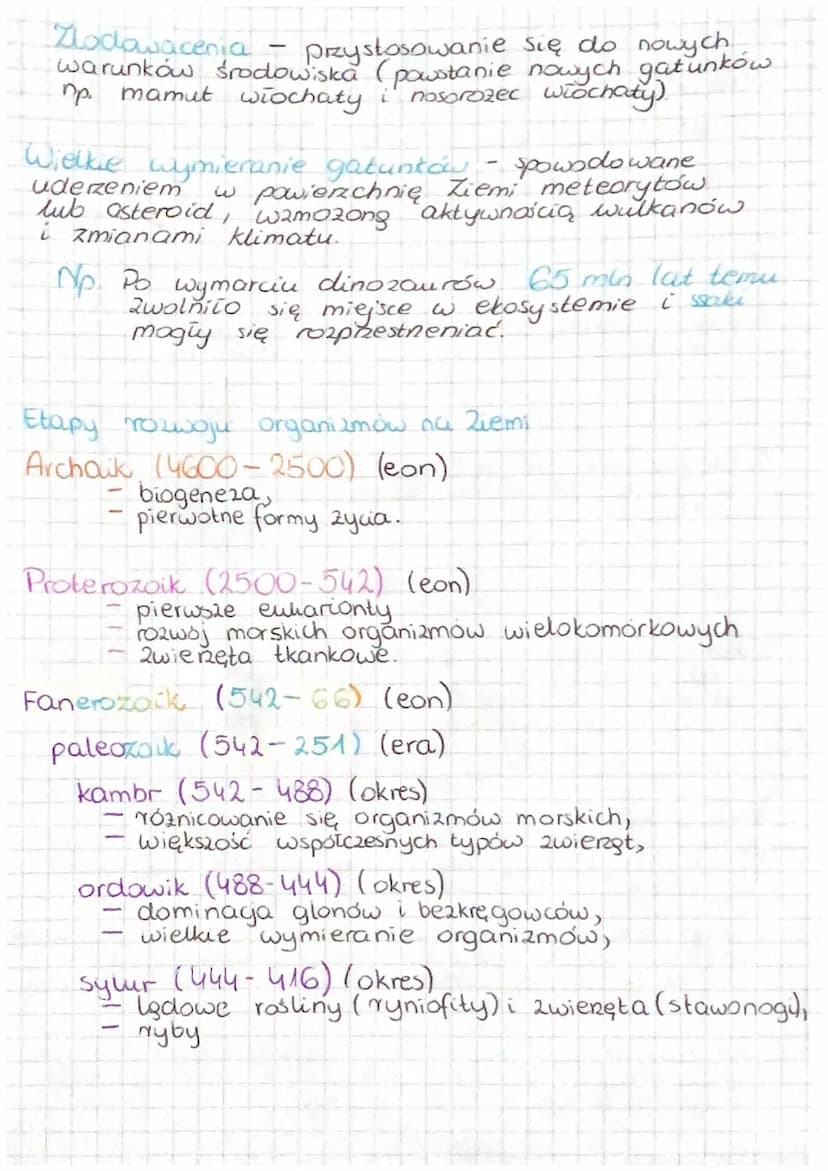 Zlodowacenia – przystosowanie się do nowych
warunków środowiska (powstanie nowych gatunków
np. mamut włochaty i nosorożec włochaty)
Wielkie wymieranie gatunków – spowodowane
uderzeniem w powierzchnię Ziemi meteorytów
lub asteroid, wzmożoną aktywnością wulkanów
i zmianami klimatu.
Np. Po wymarciu dinozaurów 65 mln lat temu
zwolniło się miejsce w ekosystemie i ssaki
mogły się rozprzestrzeniać.
Etapy rozwoju organizmów na Ziemi
Archaik (4600–2500) (eon)
– biogeneza,
– pierwotne formy życia.
Proterozoik (2500–542) (eon)
– pierwsze eukarionty
– rozwój morskich organizmów wielokomórkowych
– zwierzęta tkankowe.
Fanerozoik (542–66) (eon)
paleozoik (542–251) (era)
kambr (542–488) (okres)
– różnicowanie się organizmów morskich,
– większość współczesnych typów zwierząt,
ordowik (488–444) (okres)
– dominacja glonów i bezkręgowców,
– wielkie wymieranie organizmów,
sylur (444–416) (okres)
– lądowe rośliny (ryniofity) i zwierzęta (stawonogi),
– ryby